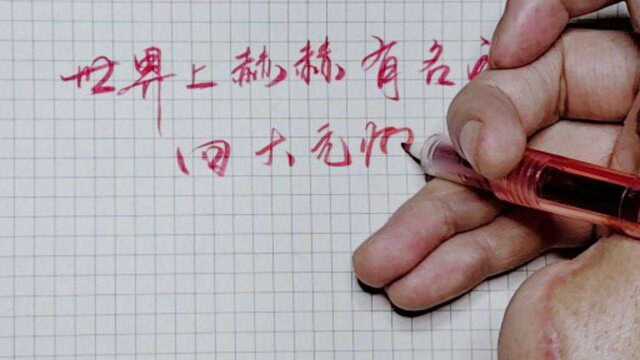 世界上赫赫有名
四大元帅